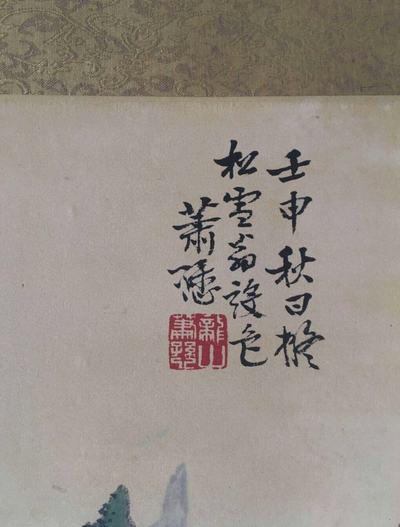 壬申秋日橅
松雪翁設色
蕭愻
龍山
蕭愻